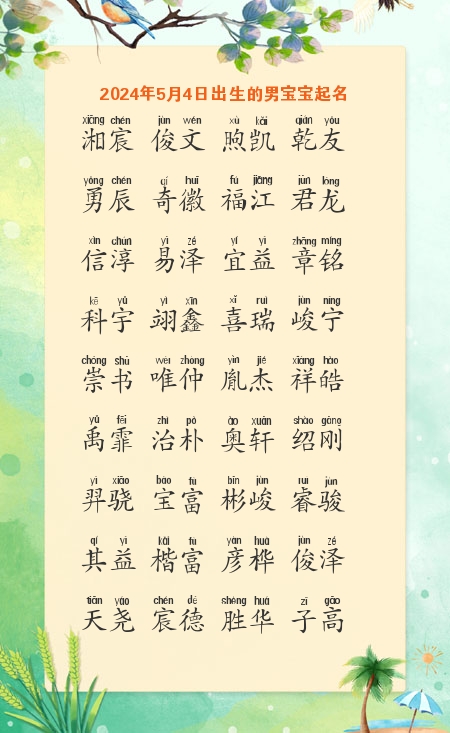 2024年5月4日出生的男宝宝起名
xiāng chén jùn wén xù kǎi qián yǒu
湘宸 俊文 煦凯 乾友
yǒng chén qí huī fú jiāng jūn lóng
勇辰 奇徽 福江 君龙
xìn chún yì zé yí yì zhāng míng
信淳 易泽 宜益 章铭
kē yǔ yì xīn xǐ ruì jùn níng
科宇 翊鑫 喜瑞 峻宁
chóng shū wéi zhòng yìn jié xiáng hào
崇书 唯仲 胤杰 祥皓
yǔ fēi zhì pò ào xuān shào gāng
禹霏 治朴 奥轩 绍刚
yì xiāo bǎo fù bīn jùn ruì jùn
羿骁 宝富 彬峻 睿骏
qí yì kǎi fù yàn huà jùn zé
其益 楷富 彦桦 俊泽
tiān yáo chén dé shèng huá zǐ gāo
天尧 宸德 胜华 子高